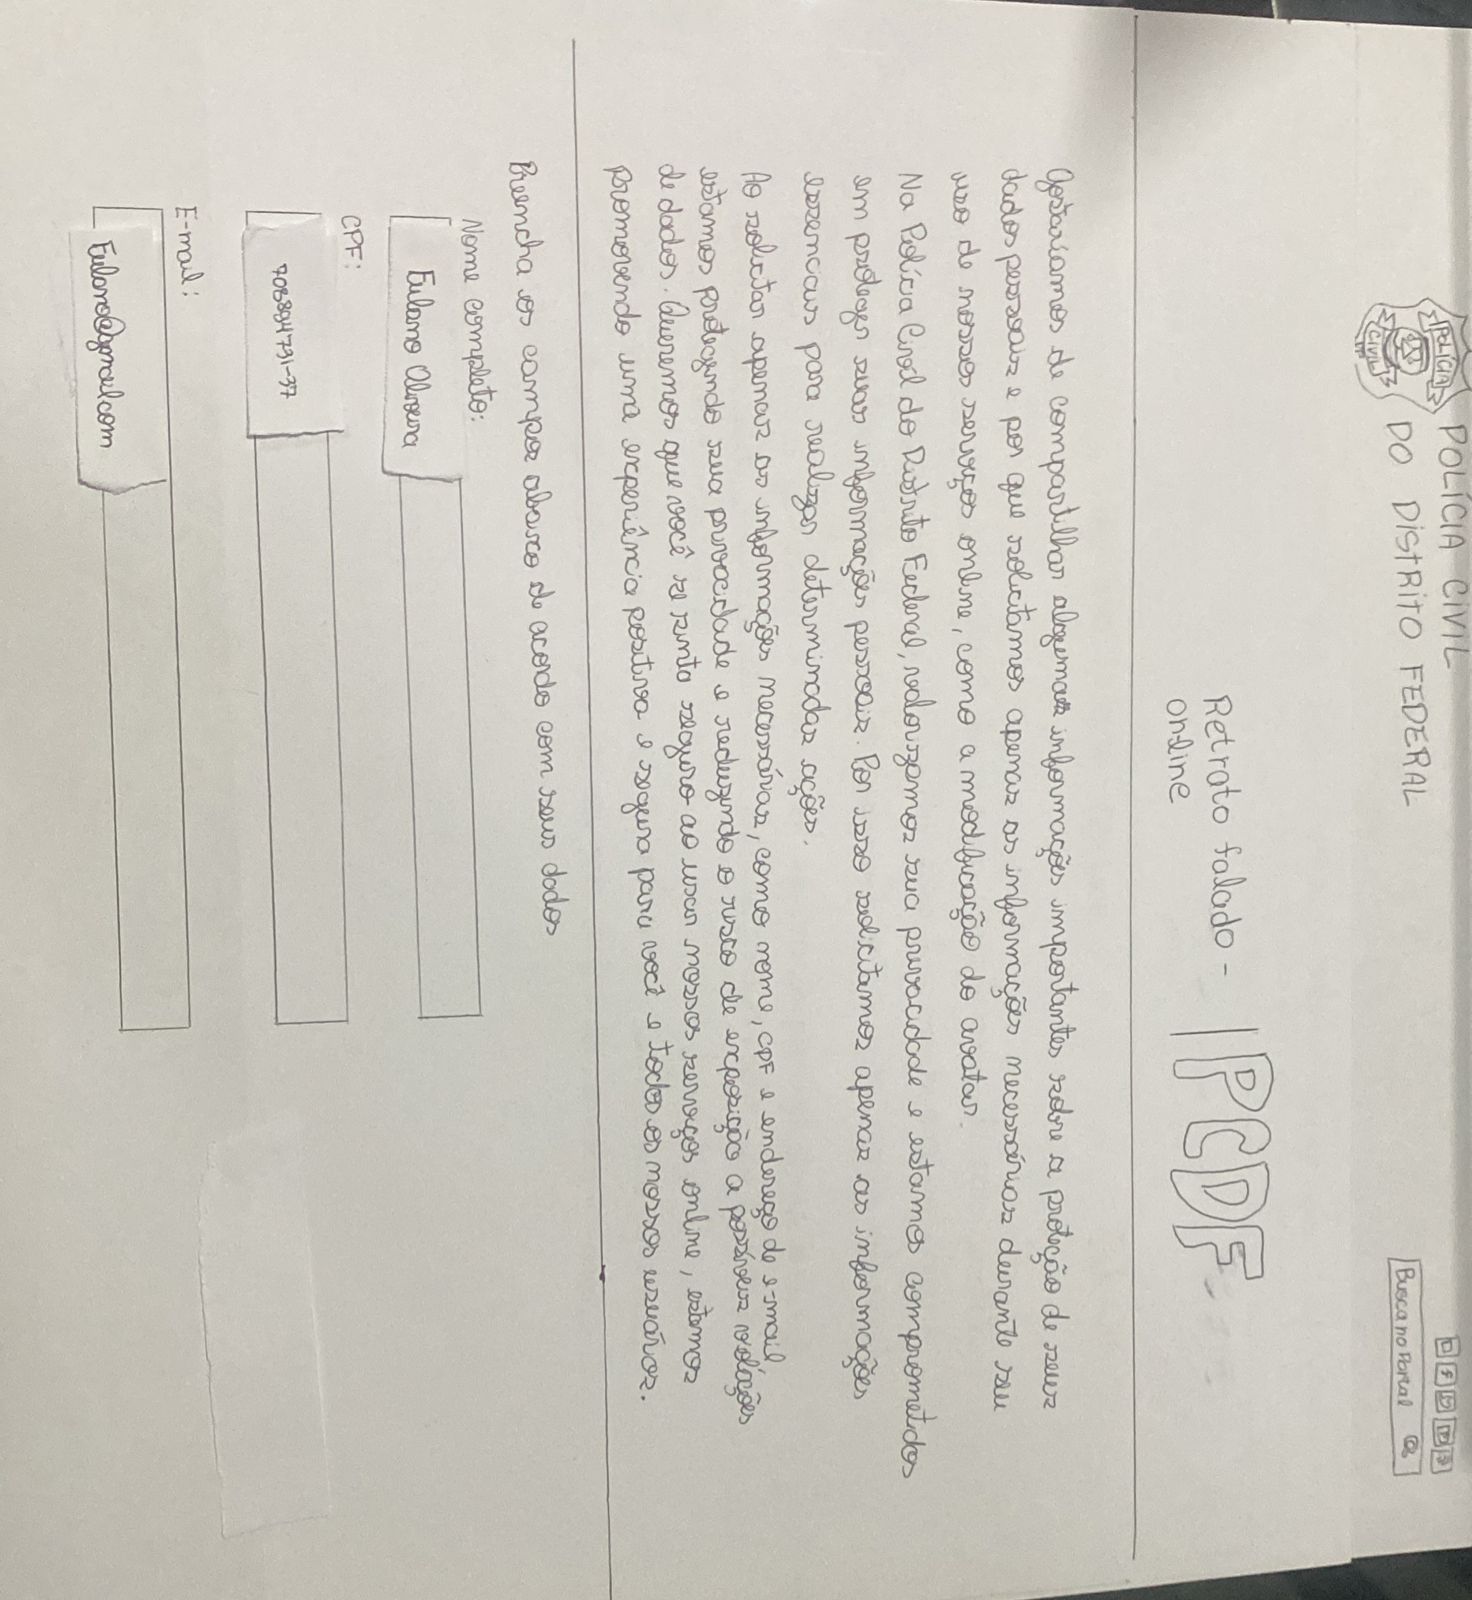 POLÍCIA
CIVIL
POLÍCIA CIVIL
DO DISTRITO FEDERAL
Busca no Portal
Retrato falado -
online
PCDF
Gostaríamos de compartilhar algumas informações importantes sobre a proteção de seus
dados pessoais e por que solicitamos apenas as informações necessárias durante seu
uso de nossos serviços online, como a modificação do avatar.
Na Polícia Civil do Distrito Federal, valorizamos sua privacidade e estamos comprometidos
em proteger suas informações pessoais. Por isso solicitamos apenas as informações
essenciais para realizar determinadas ações.
Ao solicitar apenas as informações necessárias, como nome, CPF e endereço de e-mail,
estamos protegendo sua privacidade e reduzindo o risco de exposição a possíveis violações
de dados. Queremos que você se sinta seguro ao usar nossos serviços online, estamos
promovendo uma experiência positiva e segura para você e todos os nossos usuários.
Preencha os campos abaixo de acordo com seus dados
Nome completo:
Fulano Oliveira
CPF:
708894731-37
E-mail:
Fulano@gmail.com